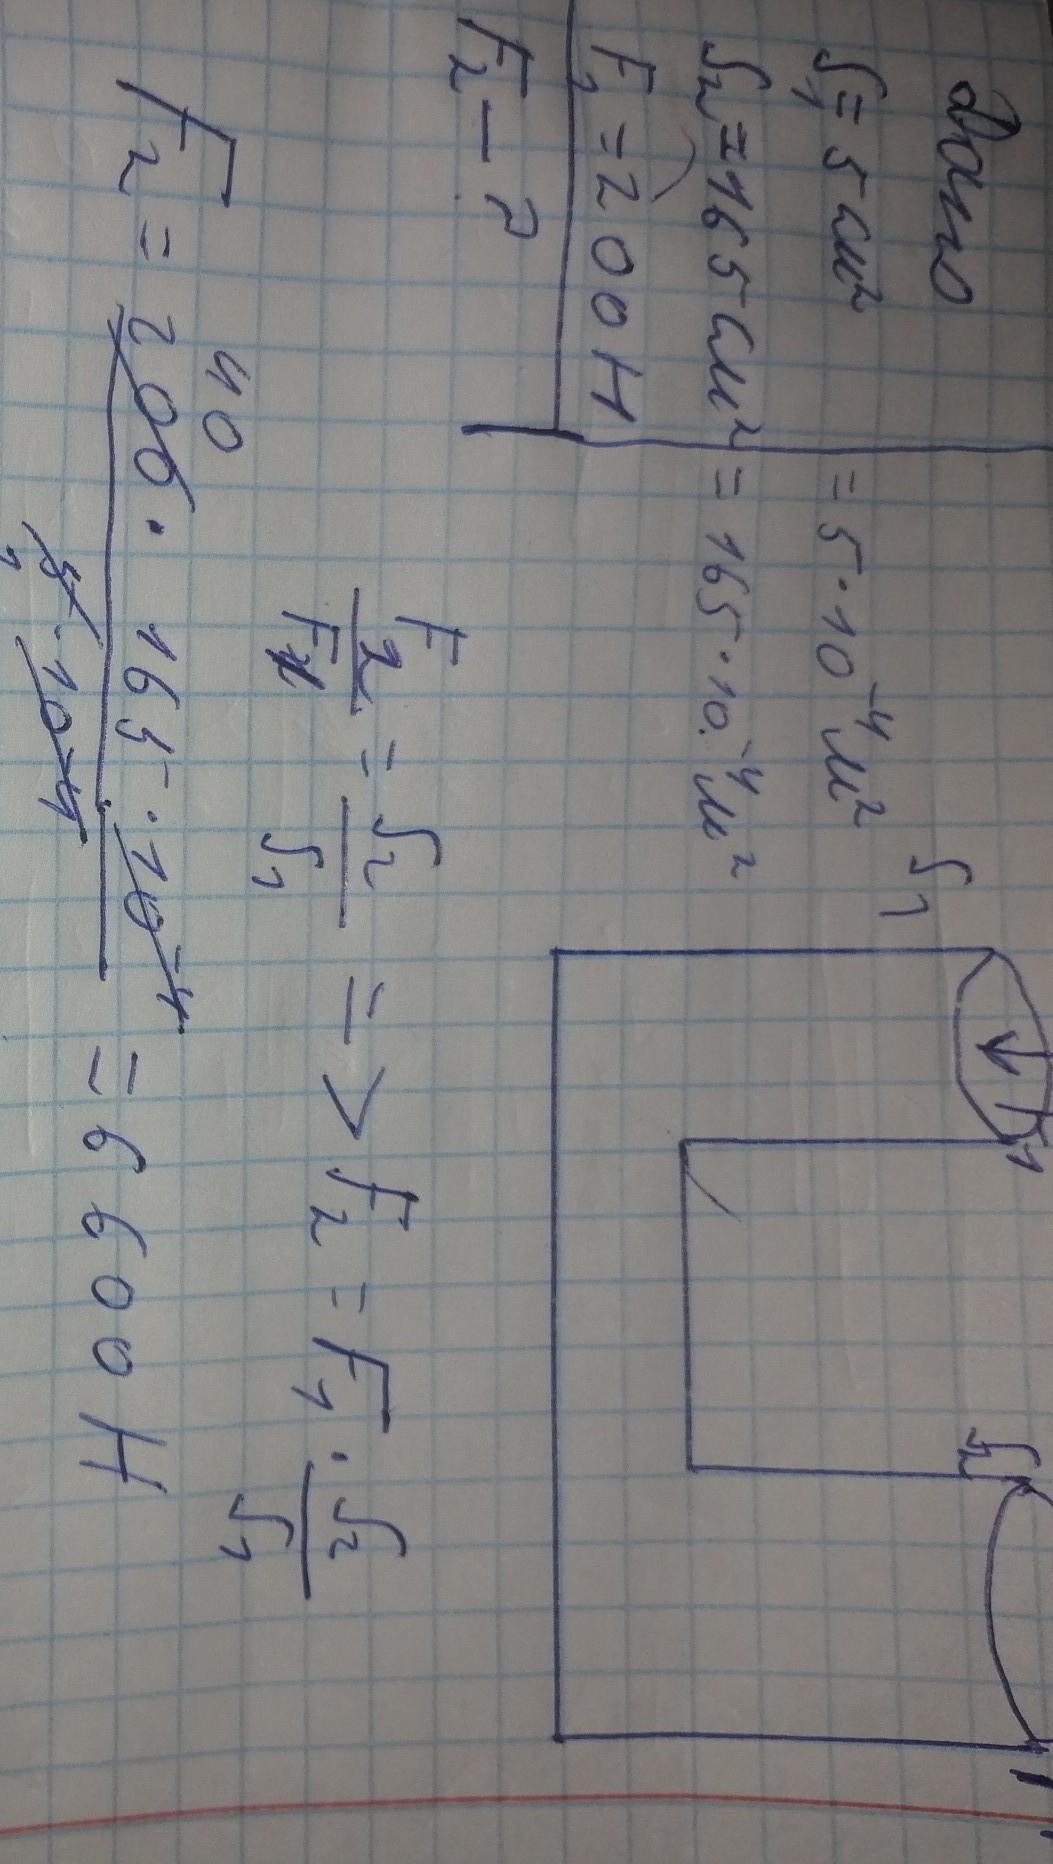 Дано
S₁ = 5 см² = 5 · 10⁻⁴ м²
S₂ = 165 см² = 165 · 10⁻⁴ м²
F₁ = 200 Н
F₂ — ?
S₁
F₁
S₂
F₂/F₁ = S₂/S₁ => F₂ = F₁ · S₂/S₁
40
F₂ = 200 · 165 · 10⁻⁴ / 5 · 10⁻⁴ = 6600 Н
1